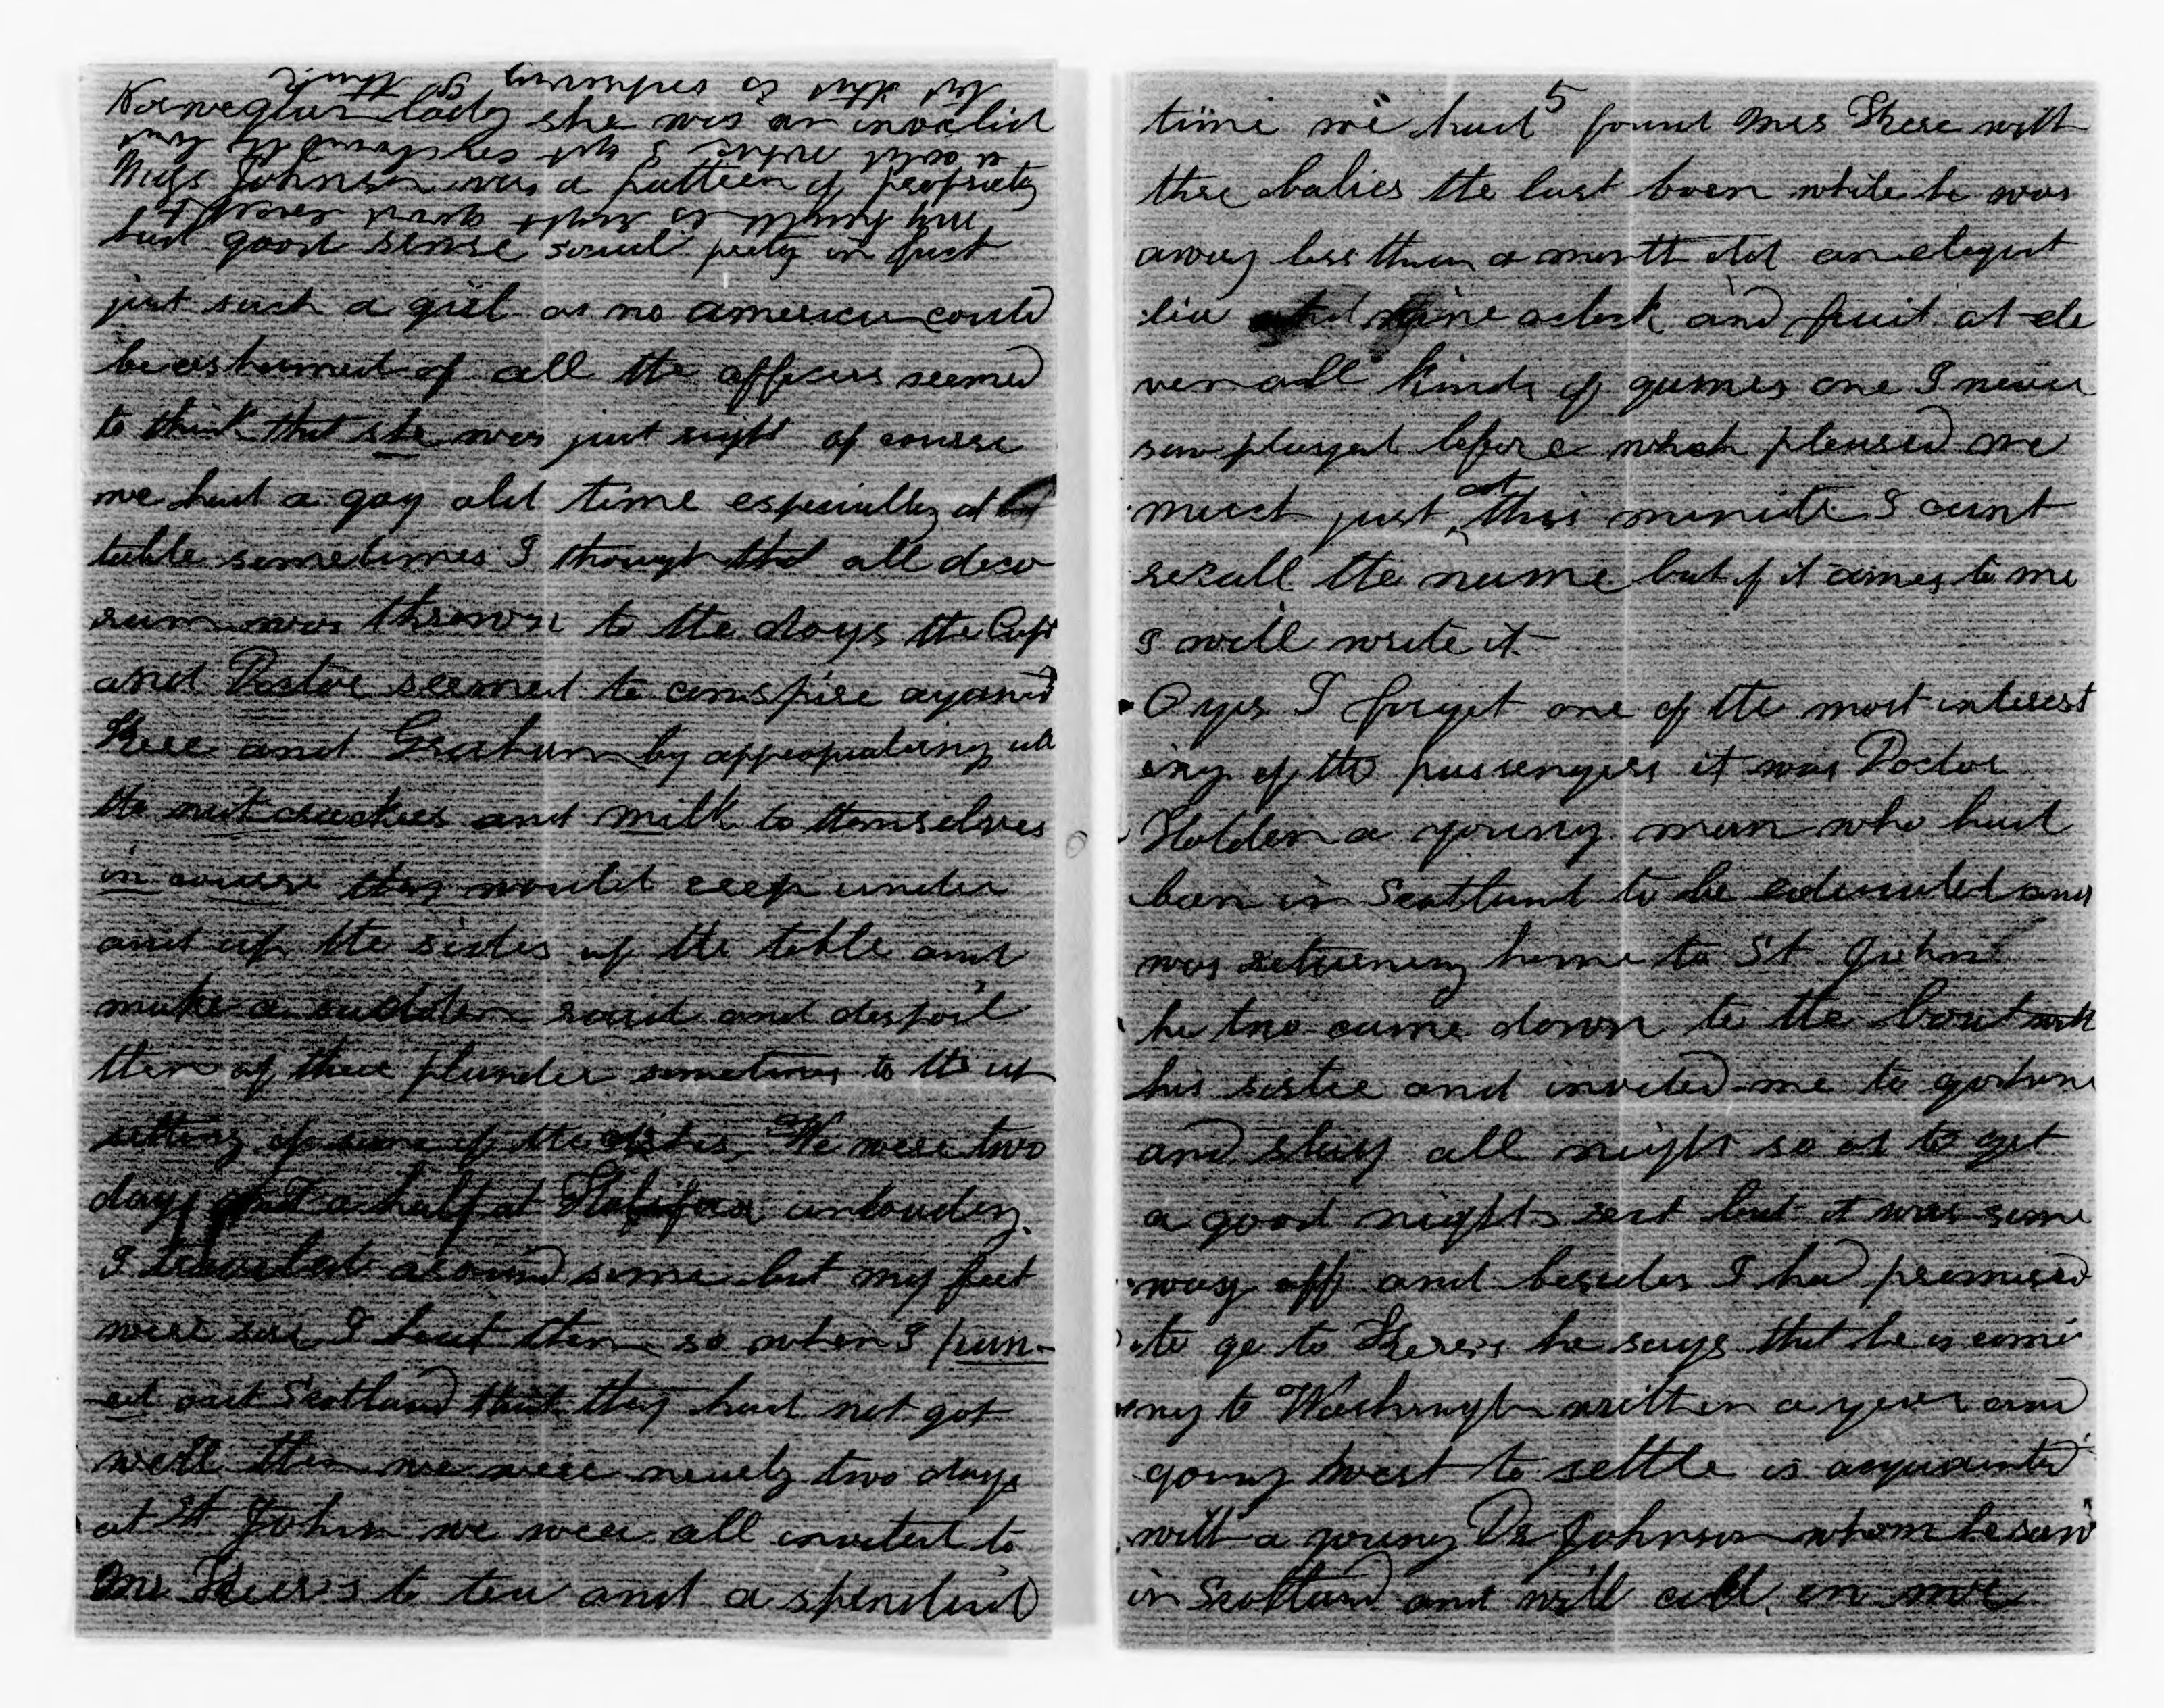 Norwegian lady she was an invalid
Miss Johnson was a pattern of propriety
but good sense social piety in fact
just such a girl as no america could
be ashamed of all the officers seemed
to think that she was just right of course
we had a gay old time especially at
table sometimes I thought that all deco
rum was thrown to the dogs the Capt
and Doctor seemed to conspire against
and Graham by appropriating all
the nut crackers and milk to themselves
in course they would creep under
and up the sides of the table and
make a sudden raid and despoil
them of their plunder sometimes to the up
setting of some of the dishes. We were two
days and a half at Halifax unloading.
I around some but my feet
were sore I hurt them so when I
out Scotland that they had not got
well then we were nearly two days
at St John we were all invited to
to tea and a splendid
5
time we had found Mrs with
three babies the last born while he was
away less than a month old an elegant
nine oclock and fruit at ele
ven all kinds of games one I never
saw played before which pleased me
much just at this minute I cant
recall the name but if it comes to me
I will write it
O yes I forget one of the most interest
ing of the passengers it was Doctor
Holden a young man who had
been in Scotland to be educated and
was returning home to St John
he too came down to the boat with
his sister and invited me to go home
and stay all night so as to get
a good nights rest but it was some
way off and besides I had promised
to go to he says that he is comi
ng to Washington within a year and
going west to settle is acquainted
with a young Dr Johnson whom he saw
in Scotland and will call on me